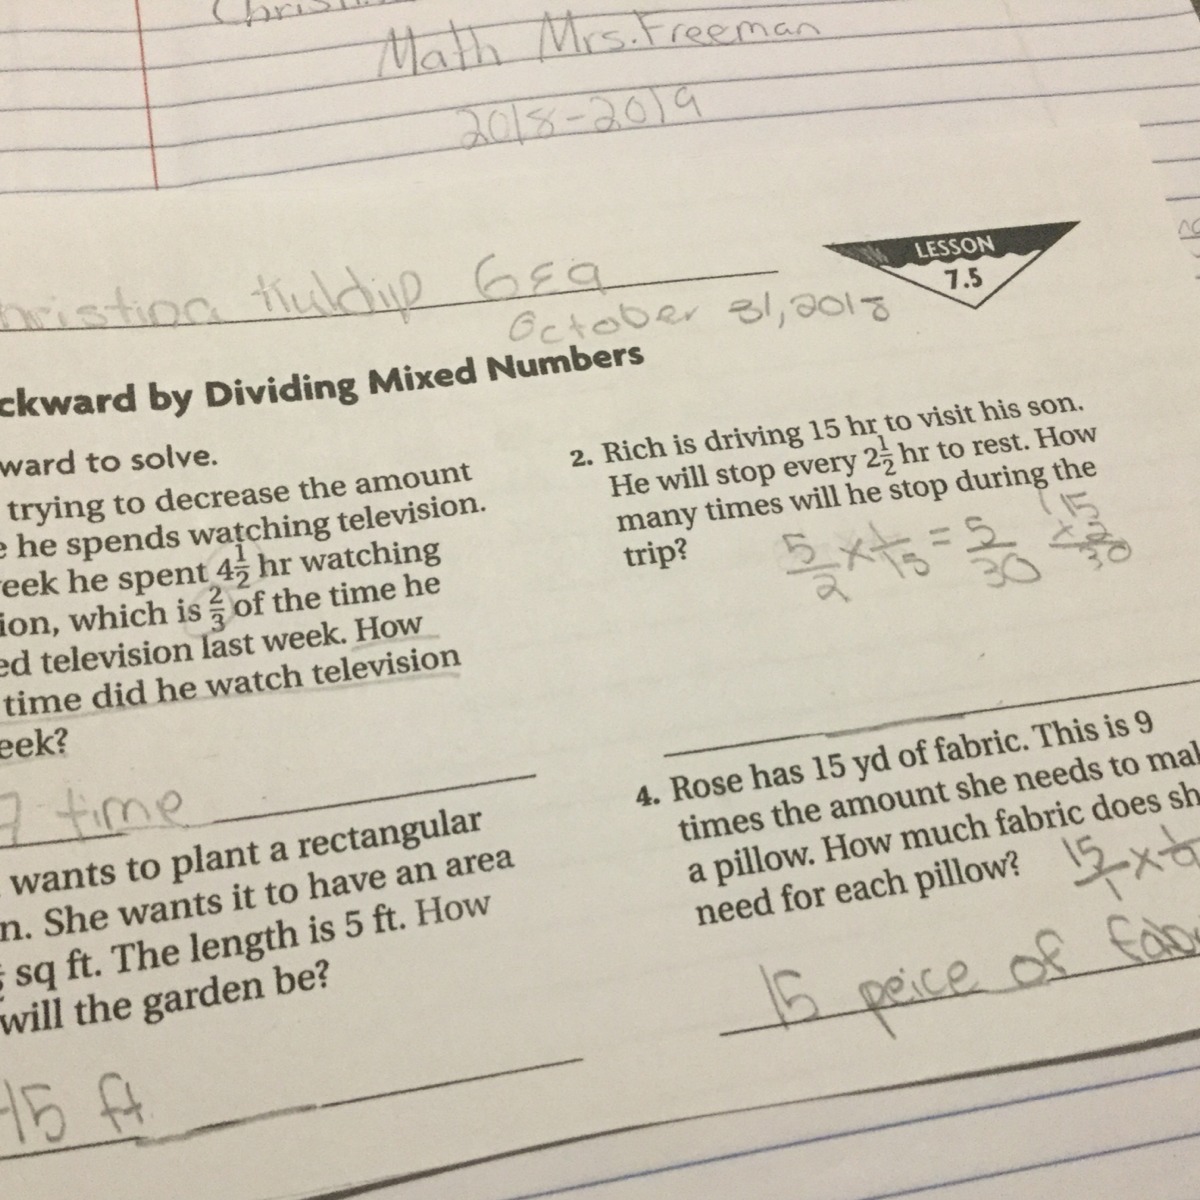 Math Mrs. Freeman
2018-2019
LESSON
7.5
hristina Kuldip
October 31, 2018
ckward by Dividing Mixed Numbers
ward to solve.
trying to decrease the amount
e he spends watching television.
eek he spent 4 1/2 hr watching
ion, which is 2/3 of the time he
ed television last week. How
time did he watch television
eek?
7 time
2. Rich is driving 15 hr to visit his son.
He will stop every 2 1/2 hr to rest. How
many times will he stop during the
trip?
5/2 x 1/15 = 5/30
15
x 2
30
wants to plant a rectangular
n. She wants it to have an area
sq ft. The length is 5 ft. How
will the garden be?
15 ft
4. Rose has 15 yd of fabric. This is 9
times the amount she needs to mak
a pillow. How much fabric does sh
need for each pillow?
15/1 x
15 peice of fabr